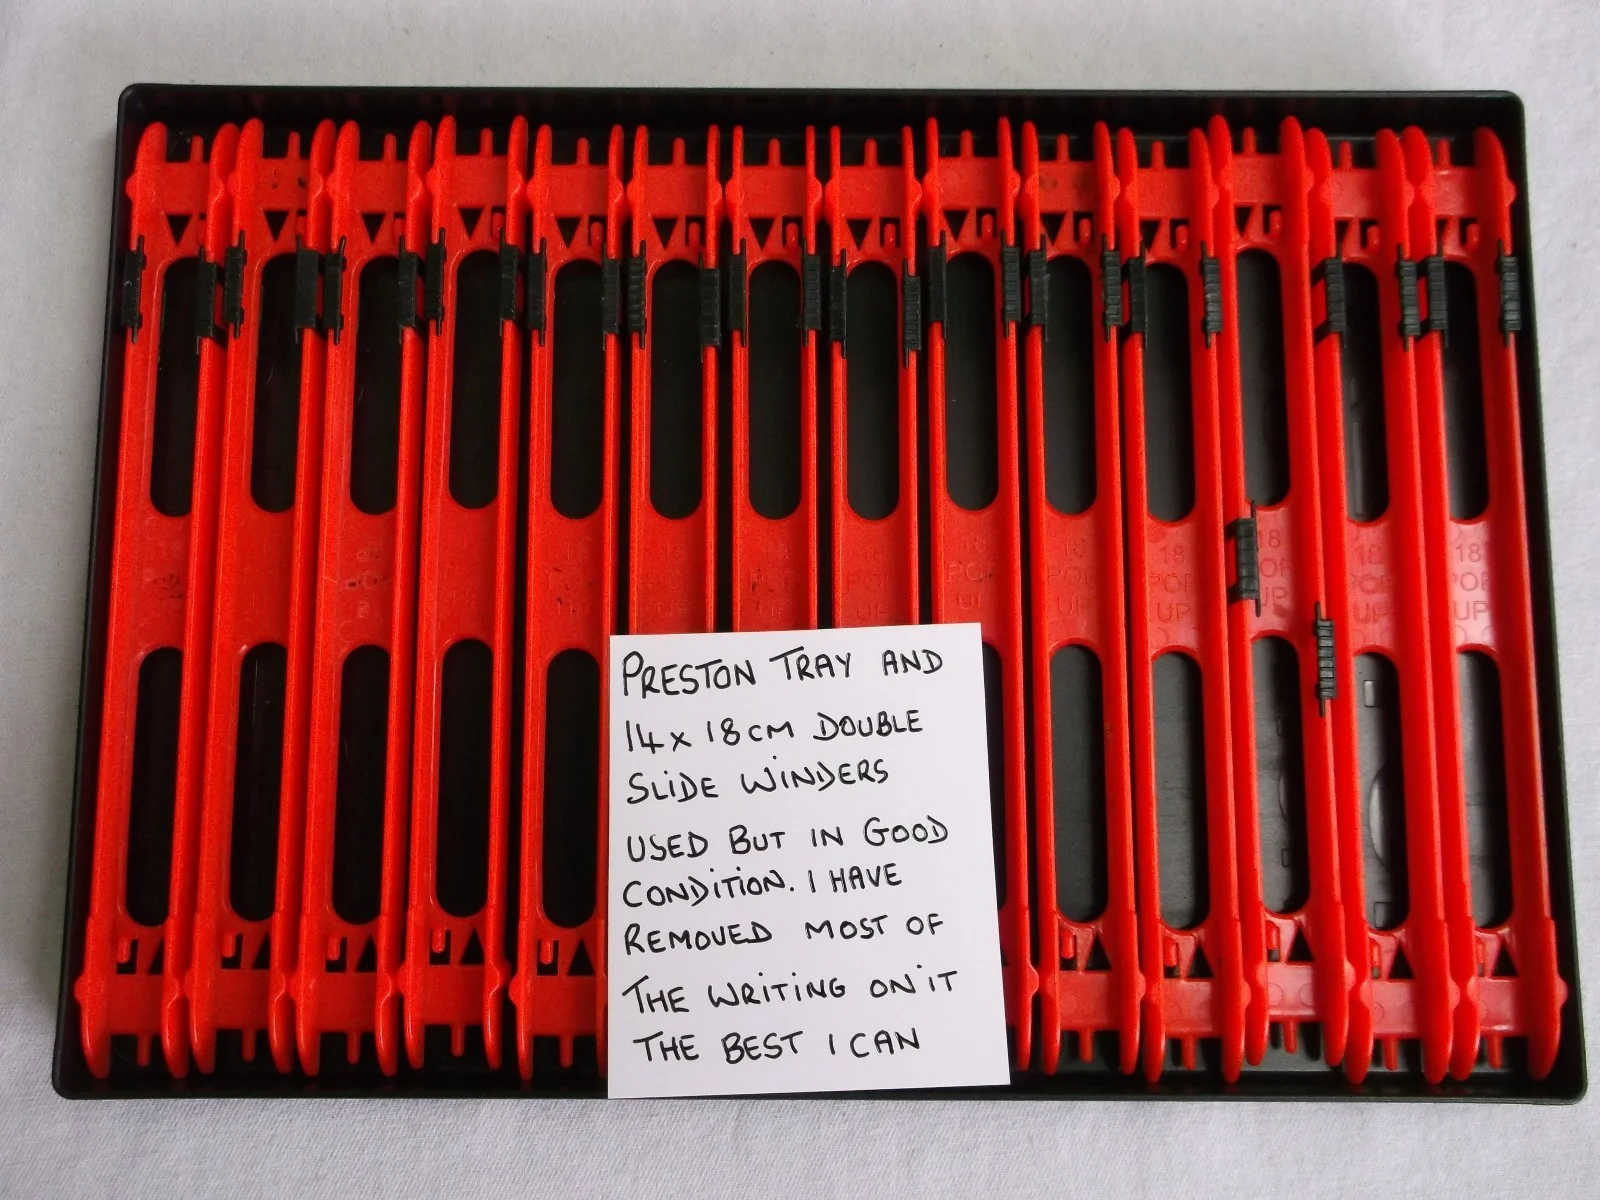 18
18
18
18
POP
UP
18
POP
UP
18
POP
UP
18
POP
UP
18
POP
UP
18
POP
UP
PRESTON TRAY AND
14 x 18CM DOUBLE
SLIDE WINDERS
USED BUT IN GOOD
CONDITION. I HAVE
REMOVED MOST OF
THE WRITING ON IT
THE BEST I CAN